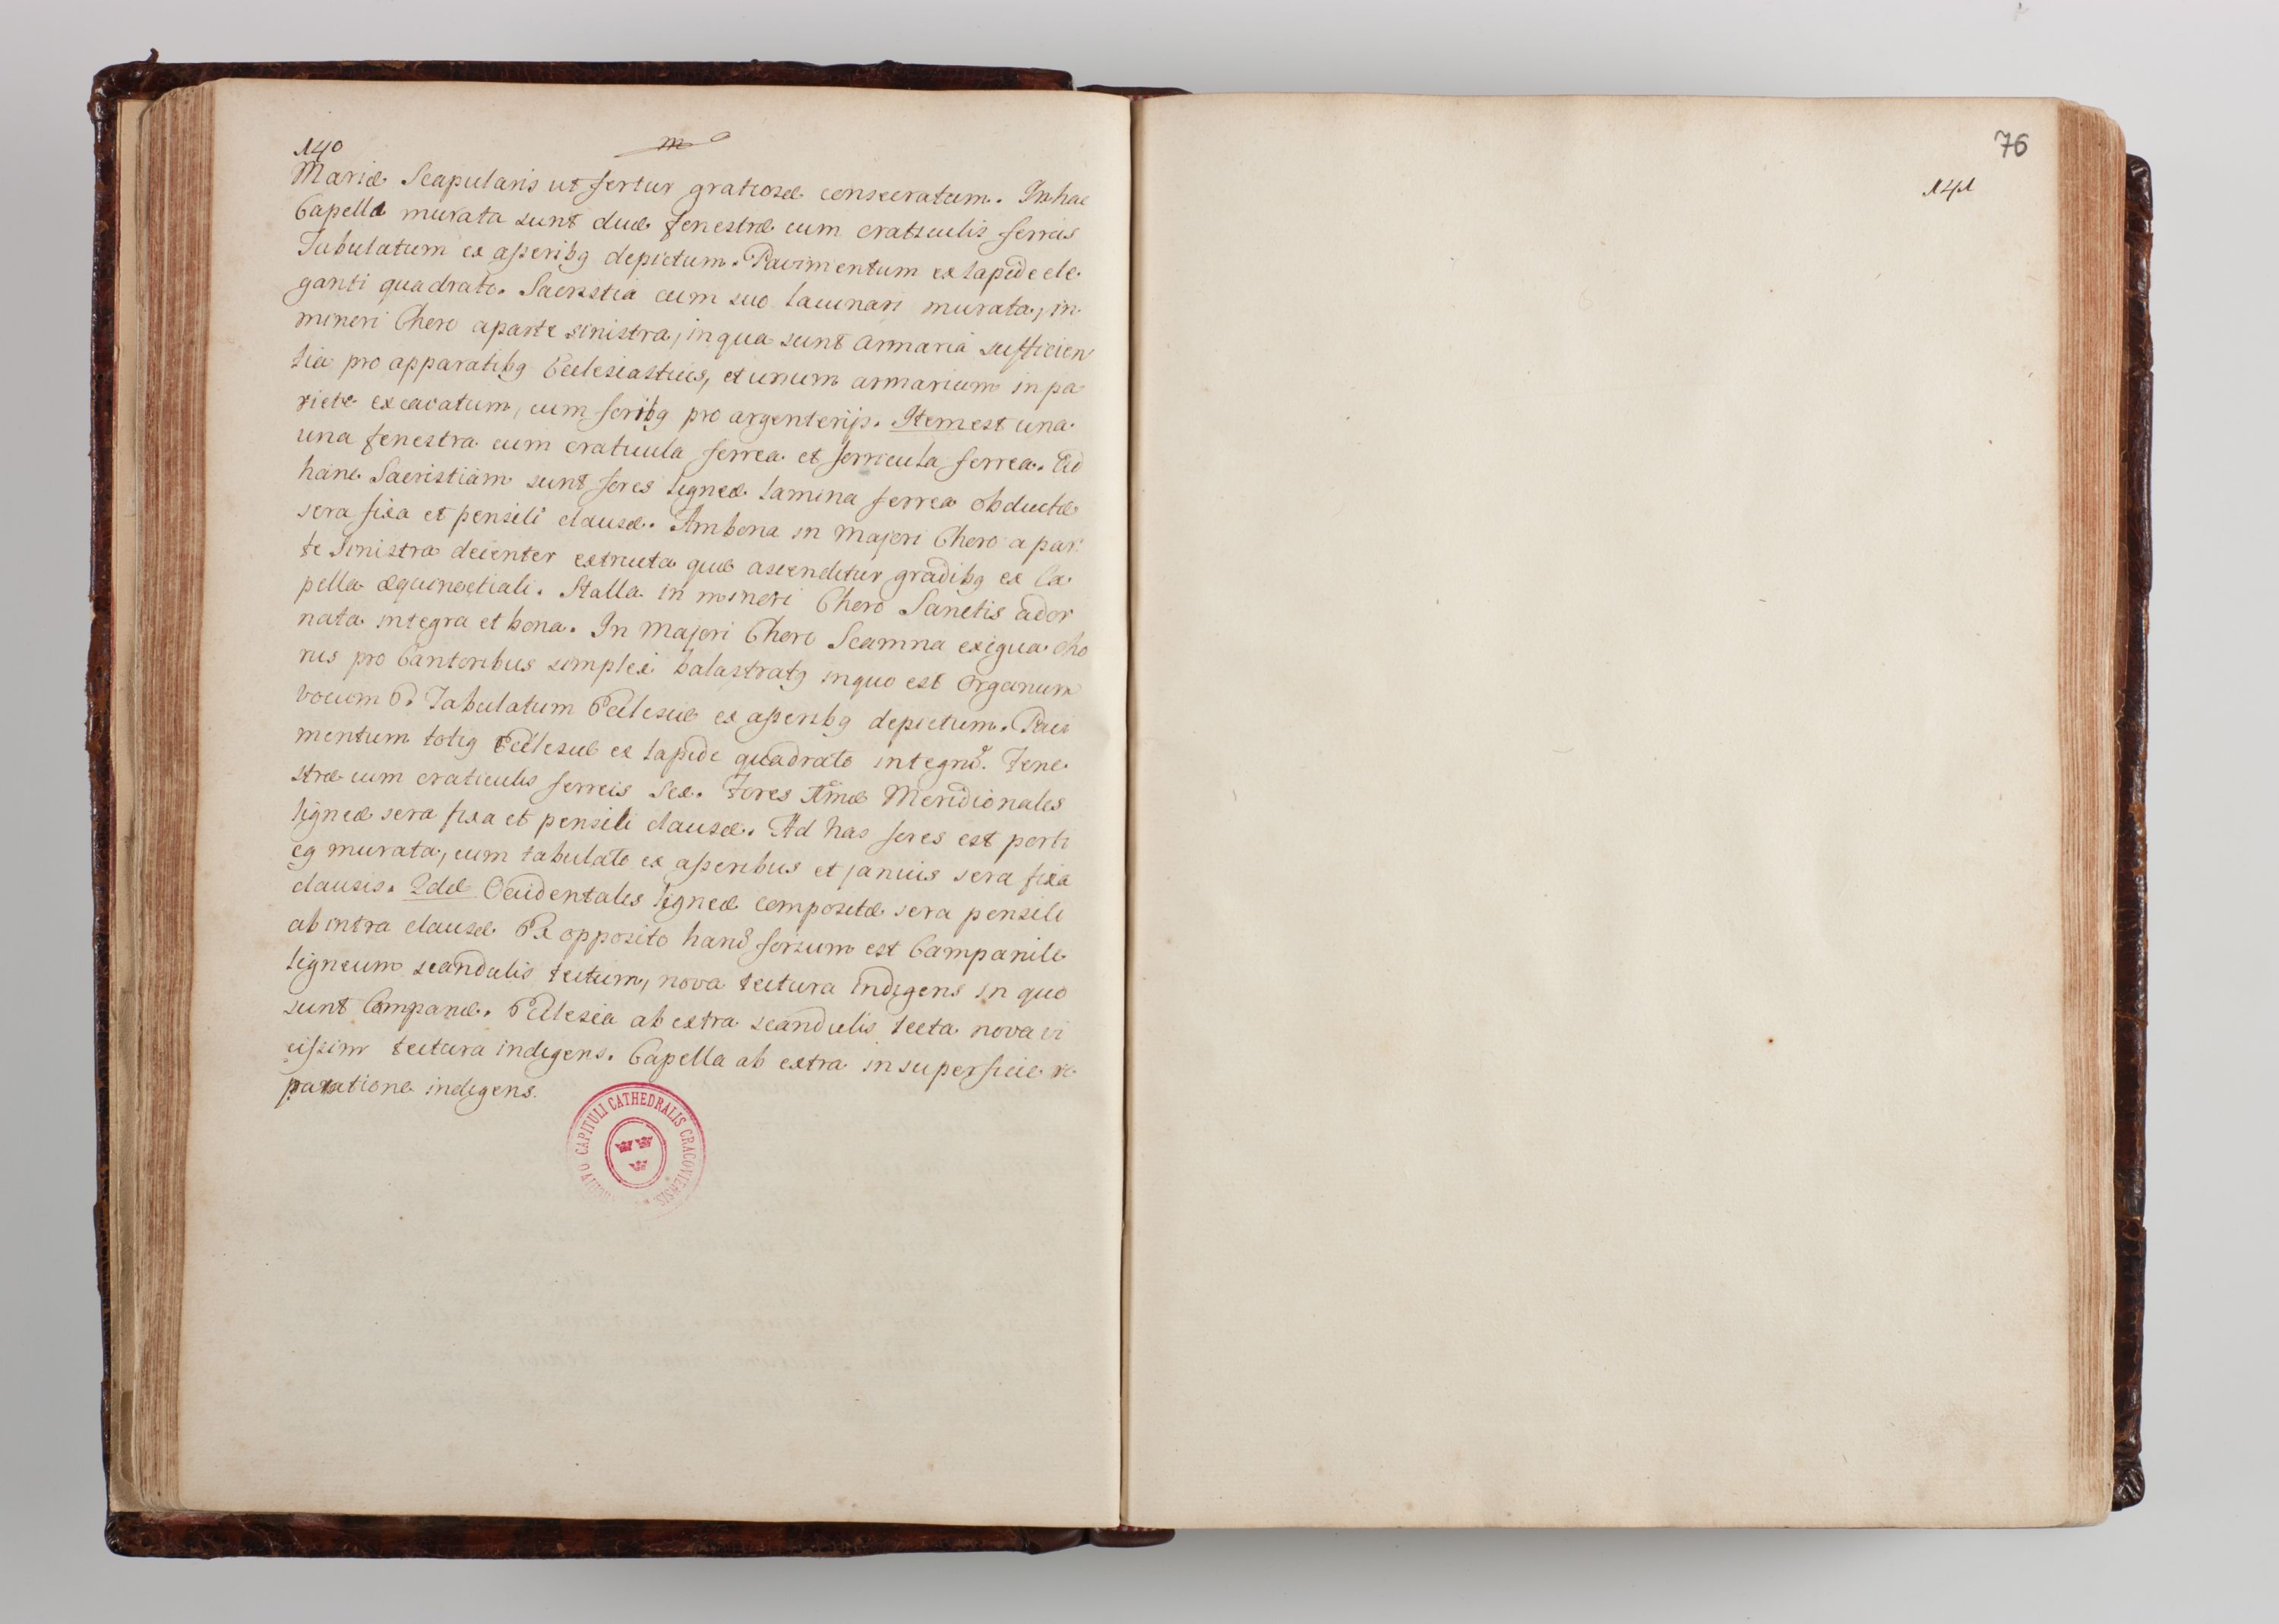 140
m
Mariæ Scapularis ut fertur gratiosæ consecratum. In hac
Capella murata sunt duæ fenestræ cum craticulis ferreis
Tabulatum ex asseribq depictum. Pavimentum ex lapide ele
ganti quadrato. Sacristia cum suo lacunari murata, in
minori Choro a parte sinistra, in qua sunt armaria sufficien
tia pro apparatibq Ecclesiasticis, et unum armarium in pa
riete excavatum, cum foribq pro argenterijs. Item est una
una fenestra cum craticula ferrea et serricula ferrea. Ad
hanc Sacristiam sunt fores ligneæ lamina ferrea obductæ
sera fixa et pensili clausæ. Ambona in majori Choro a par
te sinistra decenter extructa quæ ascenditur gradibq ex Ca
pella æquinoctiali. Stalla in minori Choro Sanctis ador
nata integra et bona. In majori Choro Scamna exigua Cho
rus pro Cantoribus simplex balastratq in quo est Organum
vocum 6. Tabulatum Ecclesiæ ex asseribq depictum. Pavi
mentum totiq Ecclesiæ ex lapide quadrato integrũ. Fene
stræ cum craticulis ferreis Sex. Fores 1mæ Meridionales
ligneæ sera fixa et pensili clausæ. Ad has fores est porti
cq murata, cum tabulato ex asseribus et januis sera fixa
clausis. 2dæ Occidentales ligneæ compositæ sera pensili
ab intra clausæ Ex opposito harũ forium est Campanile
ligneum scandulis tectum, nova tectura indigens in quo
sunt Campanæ. Ecclesia ab extra scandulis tecta nova vi
cissim tectura indigens. Capella ab extra in superficie re
paratione indigens.
CAPITULI CATHEDRALIS CRACOVIENSIS
76
141